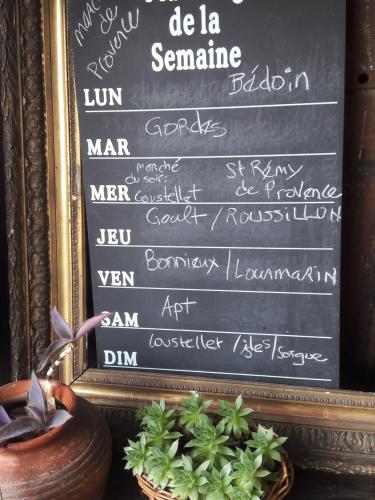 marché
de
Provence
de la
Semaine
LUN Bédoin
MAR Gordes
MER marché du soir: Coustellet St Rémy de Provence
JEU Goult / ROUSSILLON
VEN Bonnieux / LOURMARIN
SAM Apt
DIM Coustellet / isles / sorgue